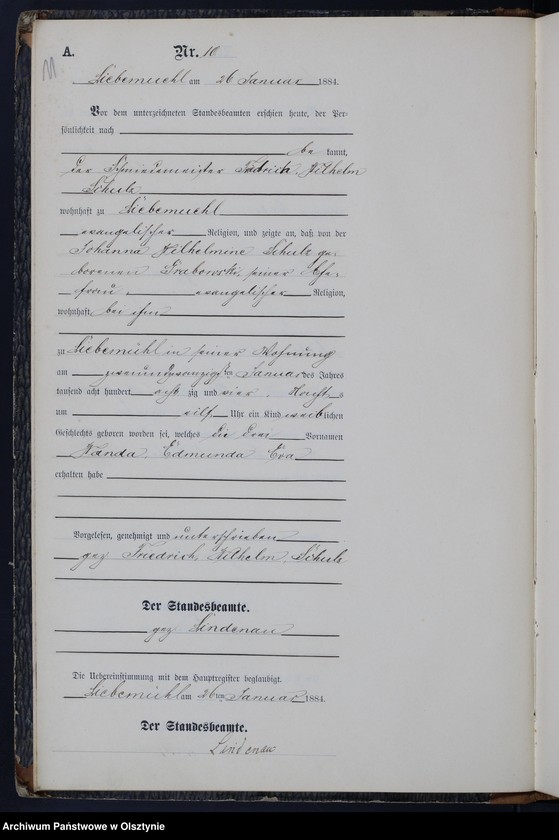 A.
Nr. 10
Liebemuehl am 26 Januar 1884.
Vor dem unterzeichneten Standesbeamten erschien heute, der Per-
sönlichkeit nach
be kannt,
der Schmiedemeister Friedrich Wilhelm
Schulz
wohnhaft zu Liebemuehl
evangelischer Religion, und zeigte an, daß von der
Johanna Wilhelmine Schulz ge-
borenen Grabowski, seiner Ehe-
frau, evangelischer Religion,
wohnhaft bei ihm
zu Liebemühl in seiner Wohnung
am zweiundzwanzigsten Januar des Jahres
tausend acht hundert acht zig und vier,
um eilf Uhr ein Kind weiblichen
Geschlechts geboren worden sei, welches die drei Vornamen
Wanda, Edmunda Eva
erhalten habe
Vorgelesen, genehmigt und unterschrieben
gez Friedrich, Wilhelm, Schulz
Der Standesbeamte.
gez Lindenau
Die Uebereinstimmung mit dem Hauptregister beglaubigt.
Liebemuehl am 26ten Januar 1884.
Der Standesbeamte.
Lindenau
Archiwum Państwowe w Olsztynie